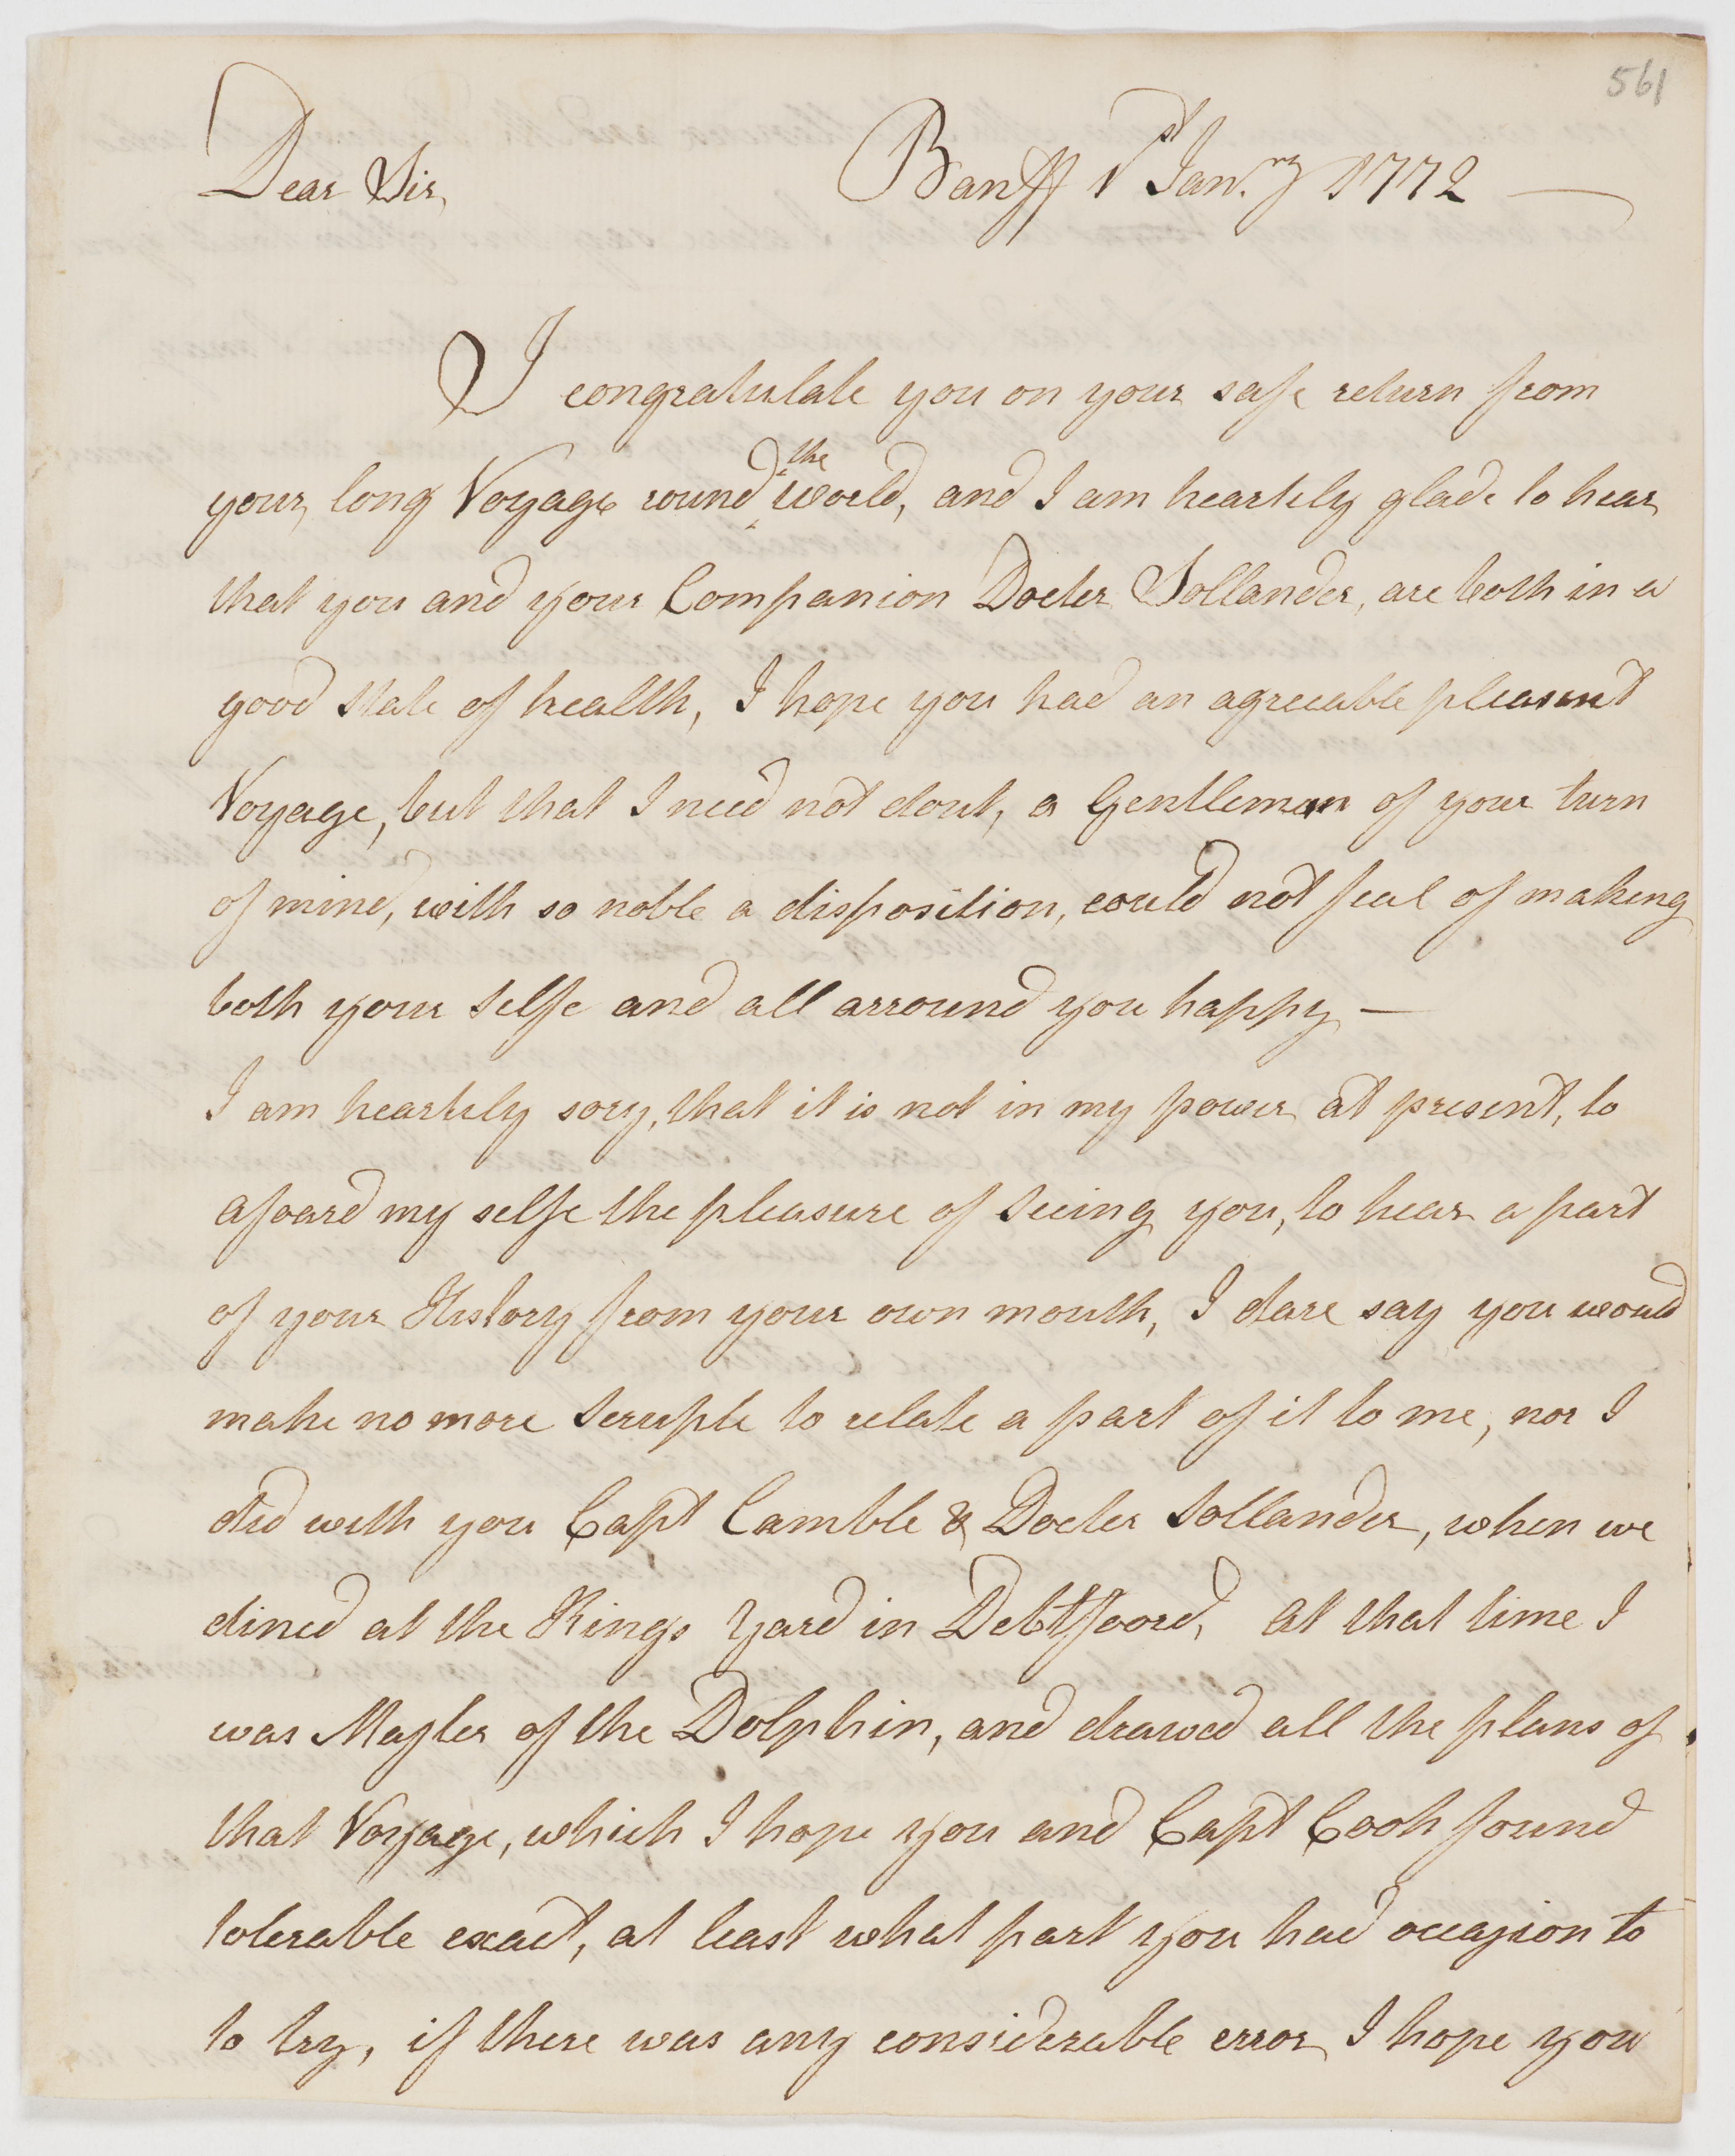 561
Dear Sir, Banff 1st Jan.ry 1772
I congratulate you on your safe return from
your long Voyage round the world, and I am heartely glade to hear
that you and your Companion Docter Sollander, are both in a
good state of health, I hope you had an agreeable pleasent
Voyage, but that I need not dout, a Gentleman of your turn
of mind, with so noble a disposition, could not feal of making
both your selfe and all arround you happy —
I am heartely sory, that it is not in my power at present, to
afoard my selfe the pleasure of seeing you, to hear a part
of your History from your own mouth, I dare say you would
make no more scruple to relate a part of it to me, nor I
did with you Capt Camble & Docter Sollander, when we
dined at the Kings Yard in Debtfoord, at that time I
was Master of the Dolphin, and drawed all the plans of
that Voyage, which I hope you and Capt Cook found
tolerable exact, at least what part you had occasion to
to try, if there was any considerable error I hope you